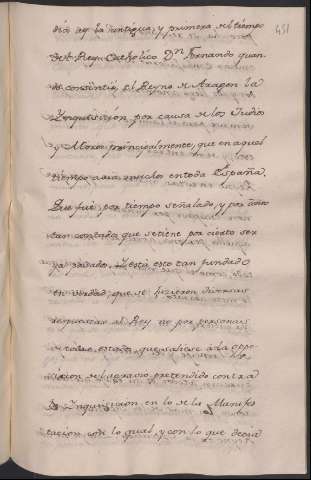 451
dia àq la antigua, y primera del tiempo
del Rey Catholico Dn Fernando quan
do consintiò el Reyno de Aragon la
Inquisicion, por causa de los Judios
y Moros principalmente, que en aquel
tiempo avia muchos en toda España.
Que fuè por tiempo señalado, y por
tan contenida que se tiene por cierto ser
ya pasado. Y està esto tan fundado
en verdad, que se hicieron diversas
respuestas al Rey no por personas
de todos estados, que saliese à la oppo
sicion del agravio pretendido contra
la Inquisicion en lo de la Manifes
tacion con lo qual, y con lo que decia